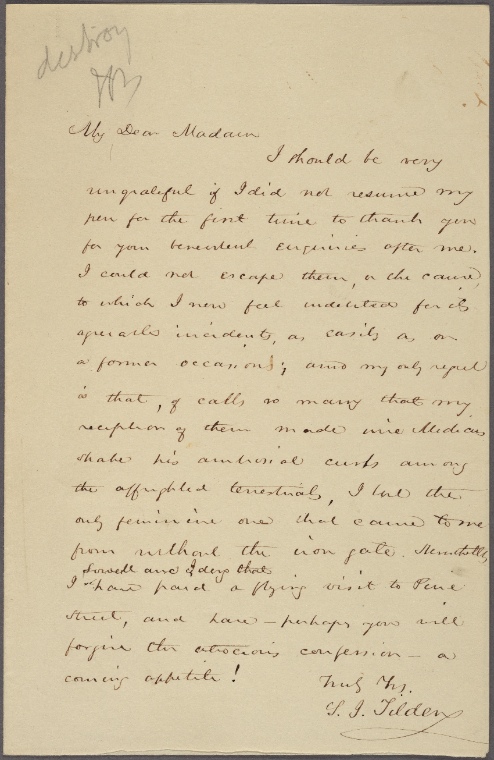 destroy
My Dear Madam
I should be very
ungrateful if I did not resume my
pen for the first time to thank you
for your benevolent enquiries after me.
I could not escape them, or the cause,
to which I now feel indebted for its
agreeable incidents, as easily as on
a former occasion; and my only regret
is that, of calls so many that my
reception of them made me Medicus
shake his ambrosial curls among
the affrighted terrestrials, I lost the
only feminine one that came to me
from without the iron gate. Nevertheless
I have paid a flying visit to Pine
Street, and have – perhaps you will
forgive the atrocious confession – a
coming appetite!
Truly Yrs.
S. J. Tilden